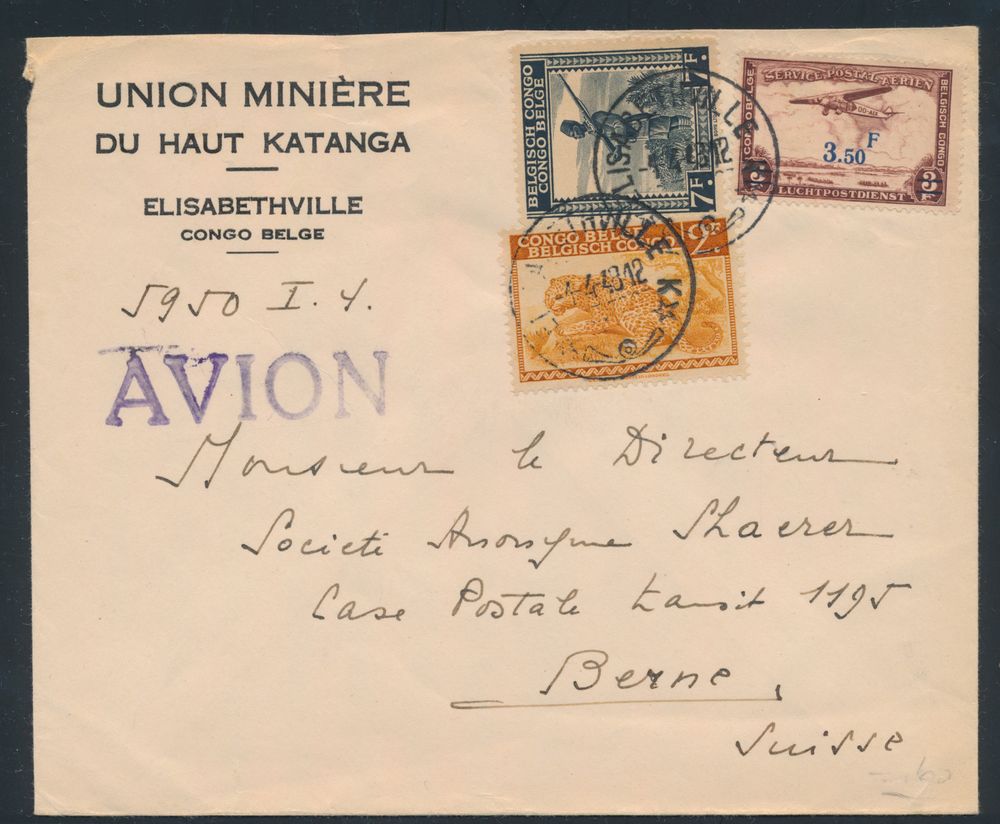 UNION MINIÈRE
DU HAUT KATANGA
ELISABETHVILLE
CONGO BELGE
5950 I. 4.
AVION
BELGISCH CONGO
CONGO BELGE
7 F. 7 F.
SERVICE POSTAL AÉRIEN
CONGO BELGE
BELGISCH CONGO
OO-AIX
3.50 F
3 3
LUCHTPOSTDIENST
CONGO BELGE
BELGISCH CONGO
2 F.
-4-4-43 12
Monsieur le Directeur
Societé Anonyme Shaerer
Case Postale transit 1195
Berne,
Suisse